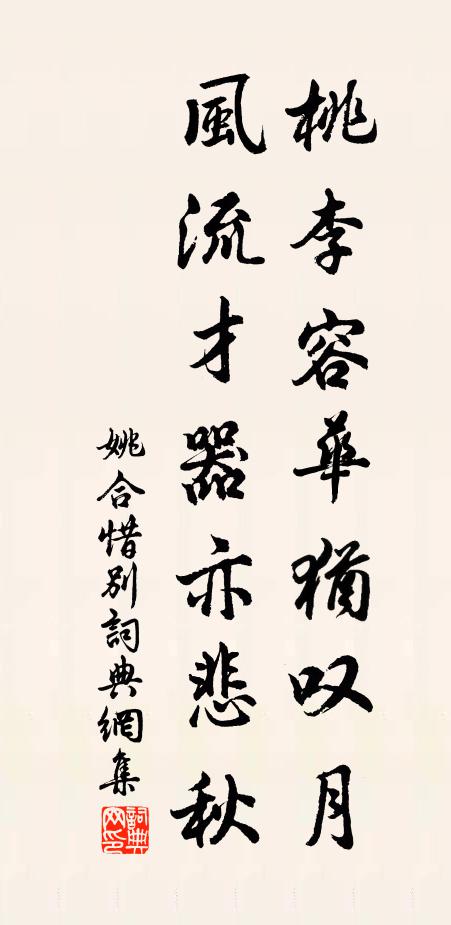 桃李容華猶叹月
風流才器亦悲秋
姚合惜別詞典網集
詞典网印